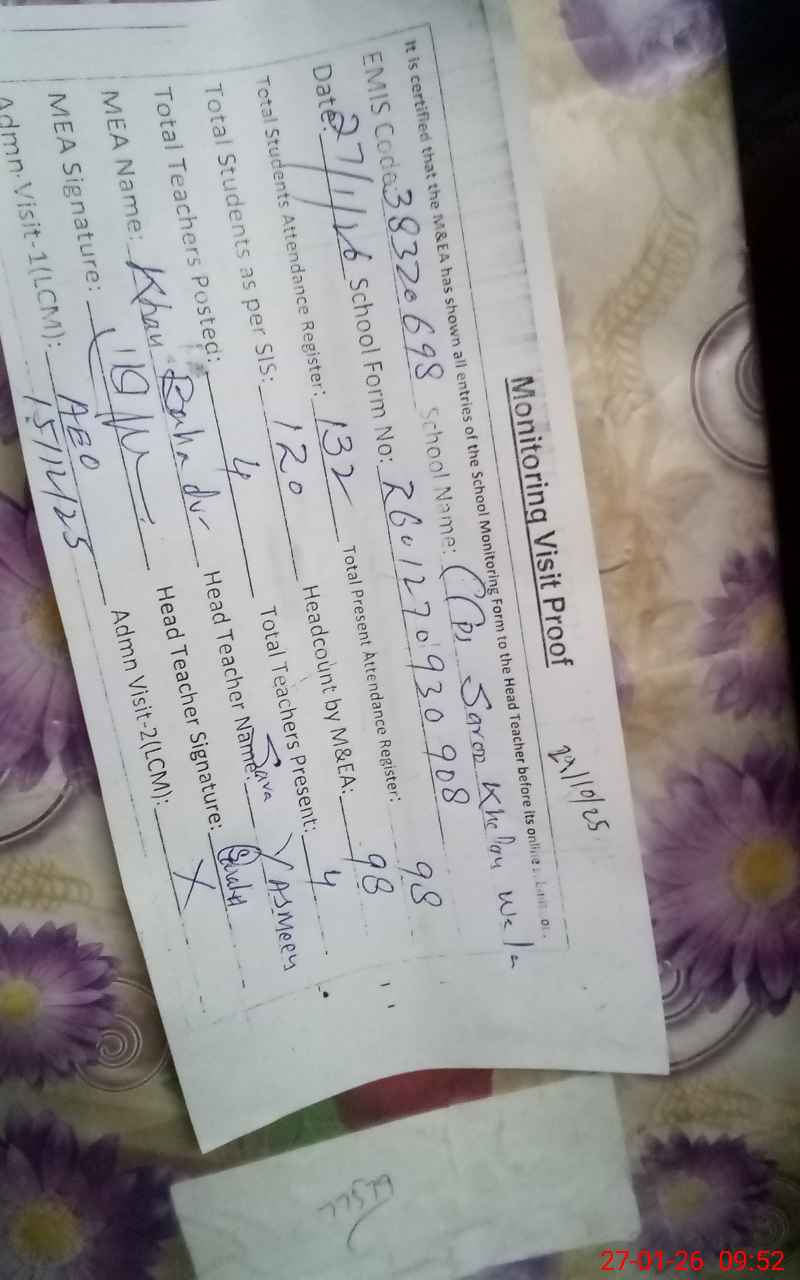 Monitoring Visit Proof
It is certified that the M&EA has shown all entries of the School Monitoring Form to the Head Teacher before its online
EMIS Code: 38320698 School Name: Saron Khe Wala
Date: 27/1/26 School Form No: 2601270930908
Total Students Attendance Register: 132 Total Present Attendance Register: 98
Total Students as per SIS: 120 Headcount by M&EA: 98
Total Teachers Posted: 4 Total Teachers Present: 4
MEA Name: Khan Bahadur Head Teacher Name: YASMeen
MEA Signature: Head Teacher Signature:
Admn. Visit-1(LCM): AEO 15/12/25 Admn Visit-2(LCM): X
27-01-26 09:52